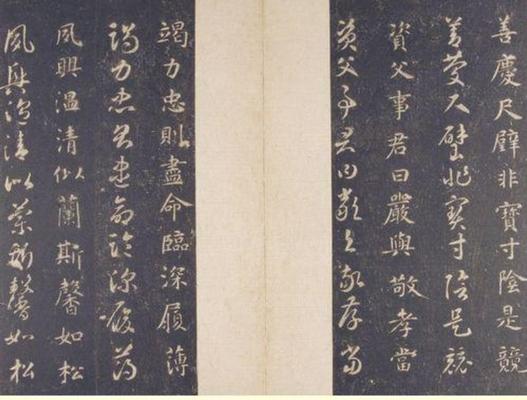 善慶尺璧非寶寸陰是競
善慶尺璧非寶寸陰是競
資父事君曰嚴與敬孝當
資父事君曰嚴與敬孝當
竭力忠則盡命臨深履薄
竭力忠則盡命臨深履薄
夙興温清似蘭斯馨如松
夙興温清似蘭斯馨如松